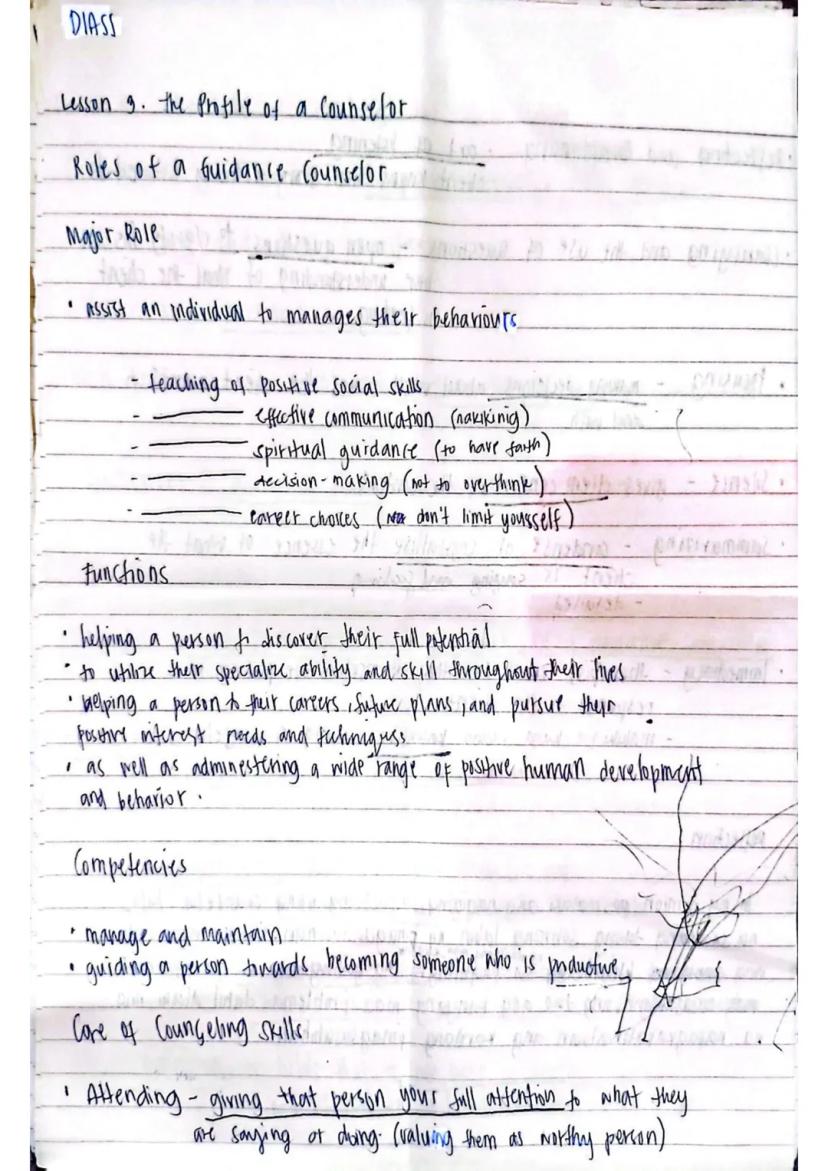 DIASS
Lesson 3. The Profile of a Counselor
Roles of a Guidance Counselor
Major Role
• assist an individual to manages their behaviours
- teaching of positive social skills
- ________ effective communication (nakikinig)
- ________ spiritual guidance (to have faith)
- ________ decision-making (not to overthink)
- ________ career choices (don't limit yourself)
Functions
• helping a person to discover their full potential
• to utilize their specialize ability and skill throughout their lives
• helping a person to their careers, future plans, and pursue their
positive interest needs and
• as well as adminestering a wide range of positive human development
and behavior.
Competencies
• manage and maintain
• guiding a person towards becoming someone who is
Core of Counseling Skills
• Attending - giving that person your full attention to what they
are saying or doing. (valuing them as worthy person)